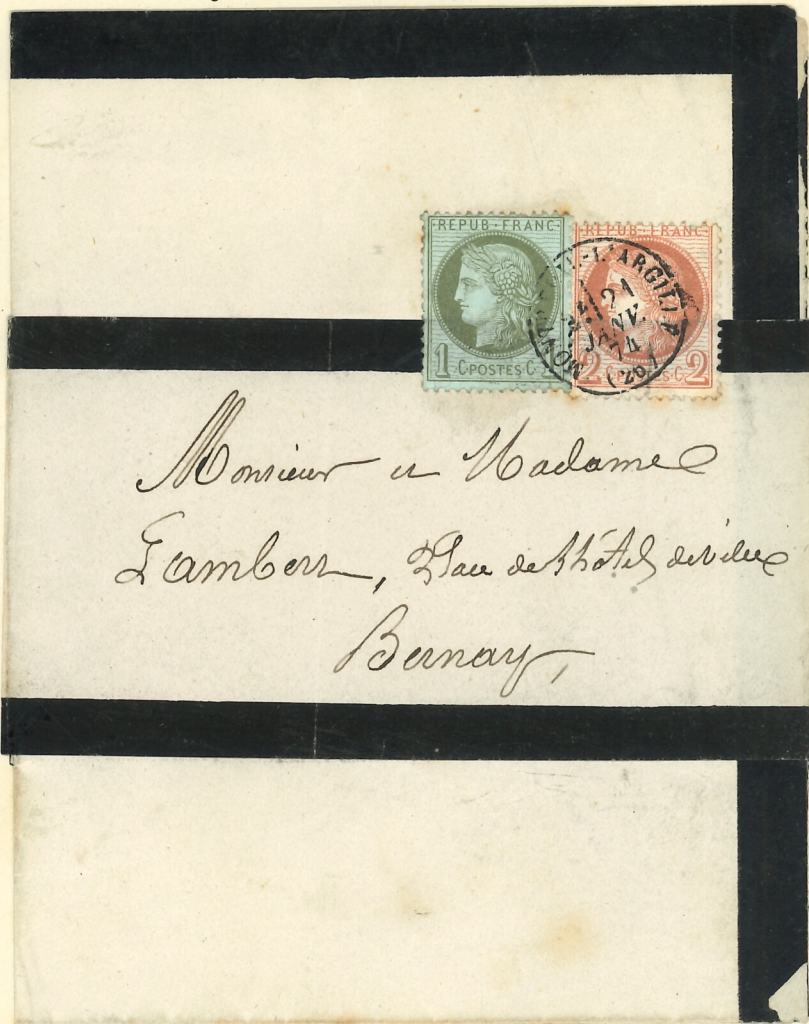 REPUB·FRANC
1 C POSTES C
REPUB·FRANC
2 C POSTES C 2
L'ARGILLE
21
JANV.
74
(26)
Monsieur et Madame
Lambert, Place de l'hôtel de ville
Bernay,